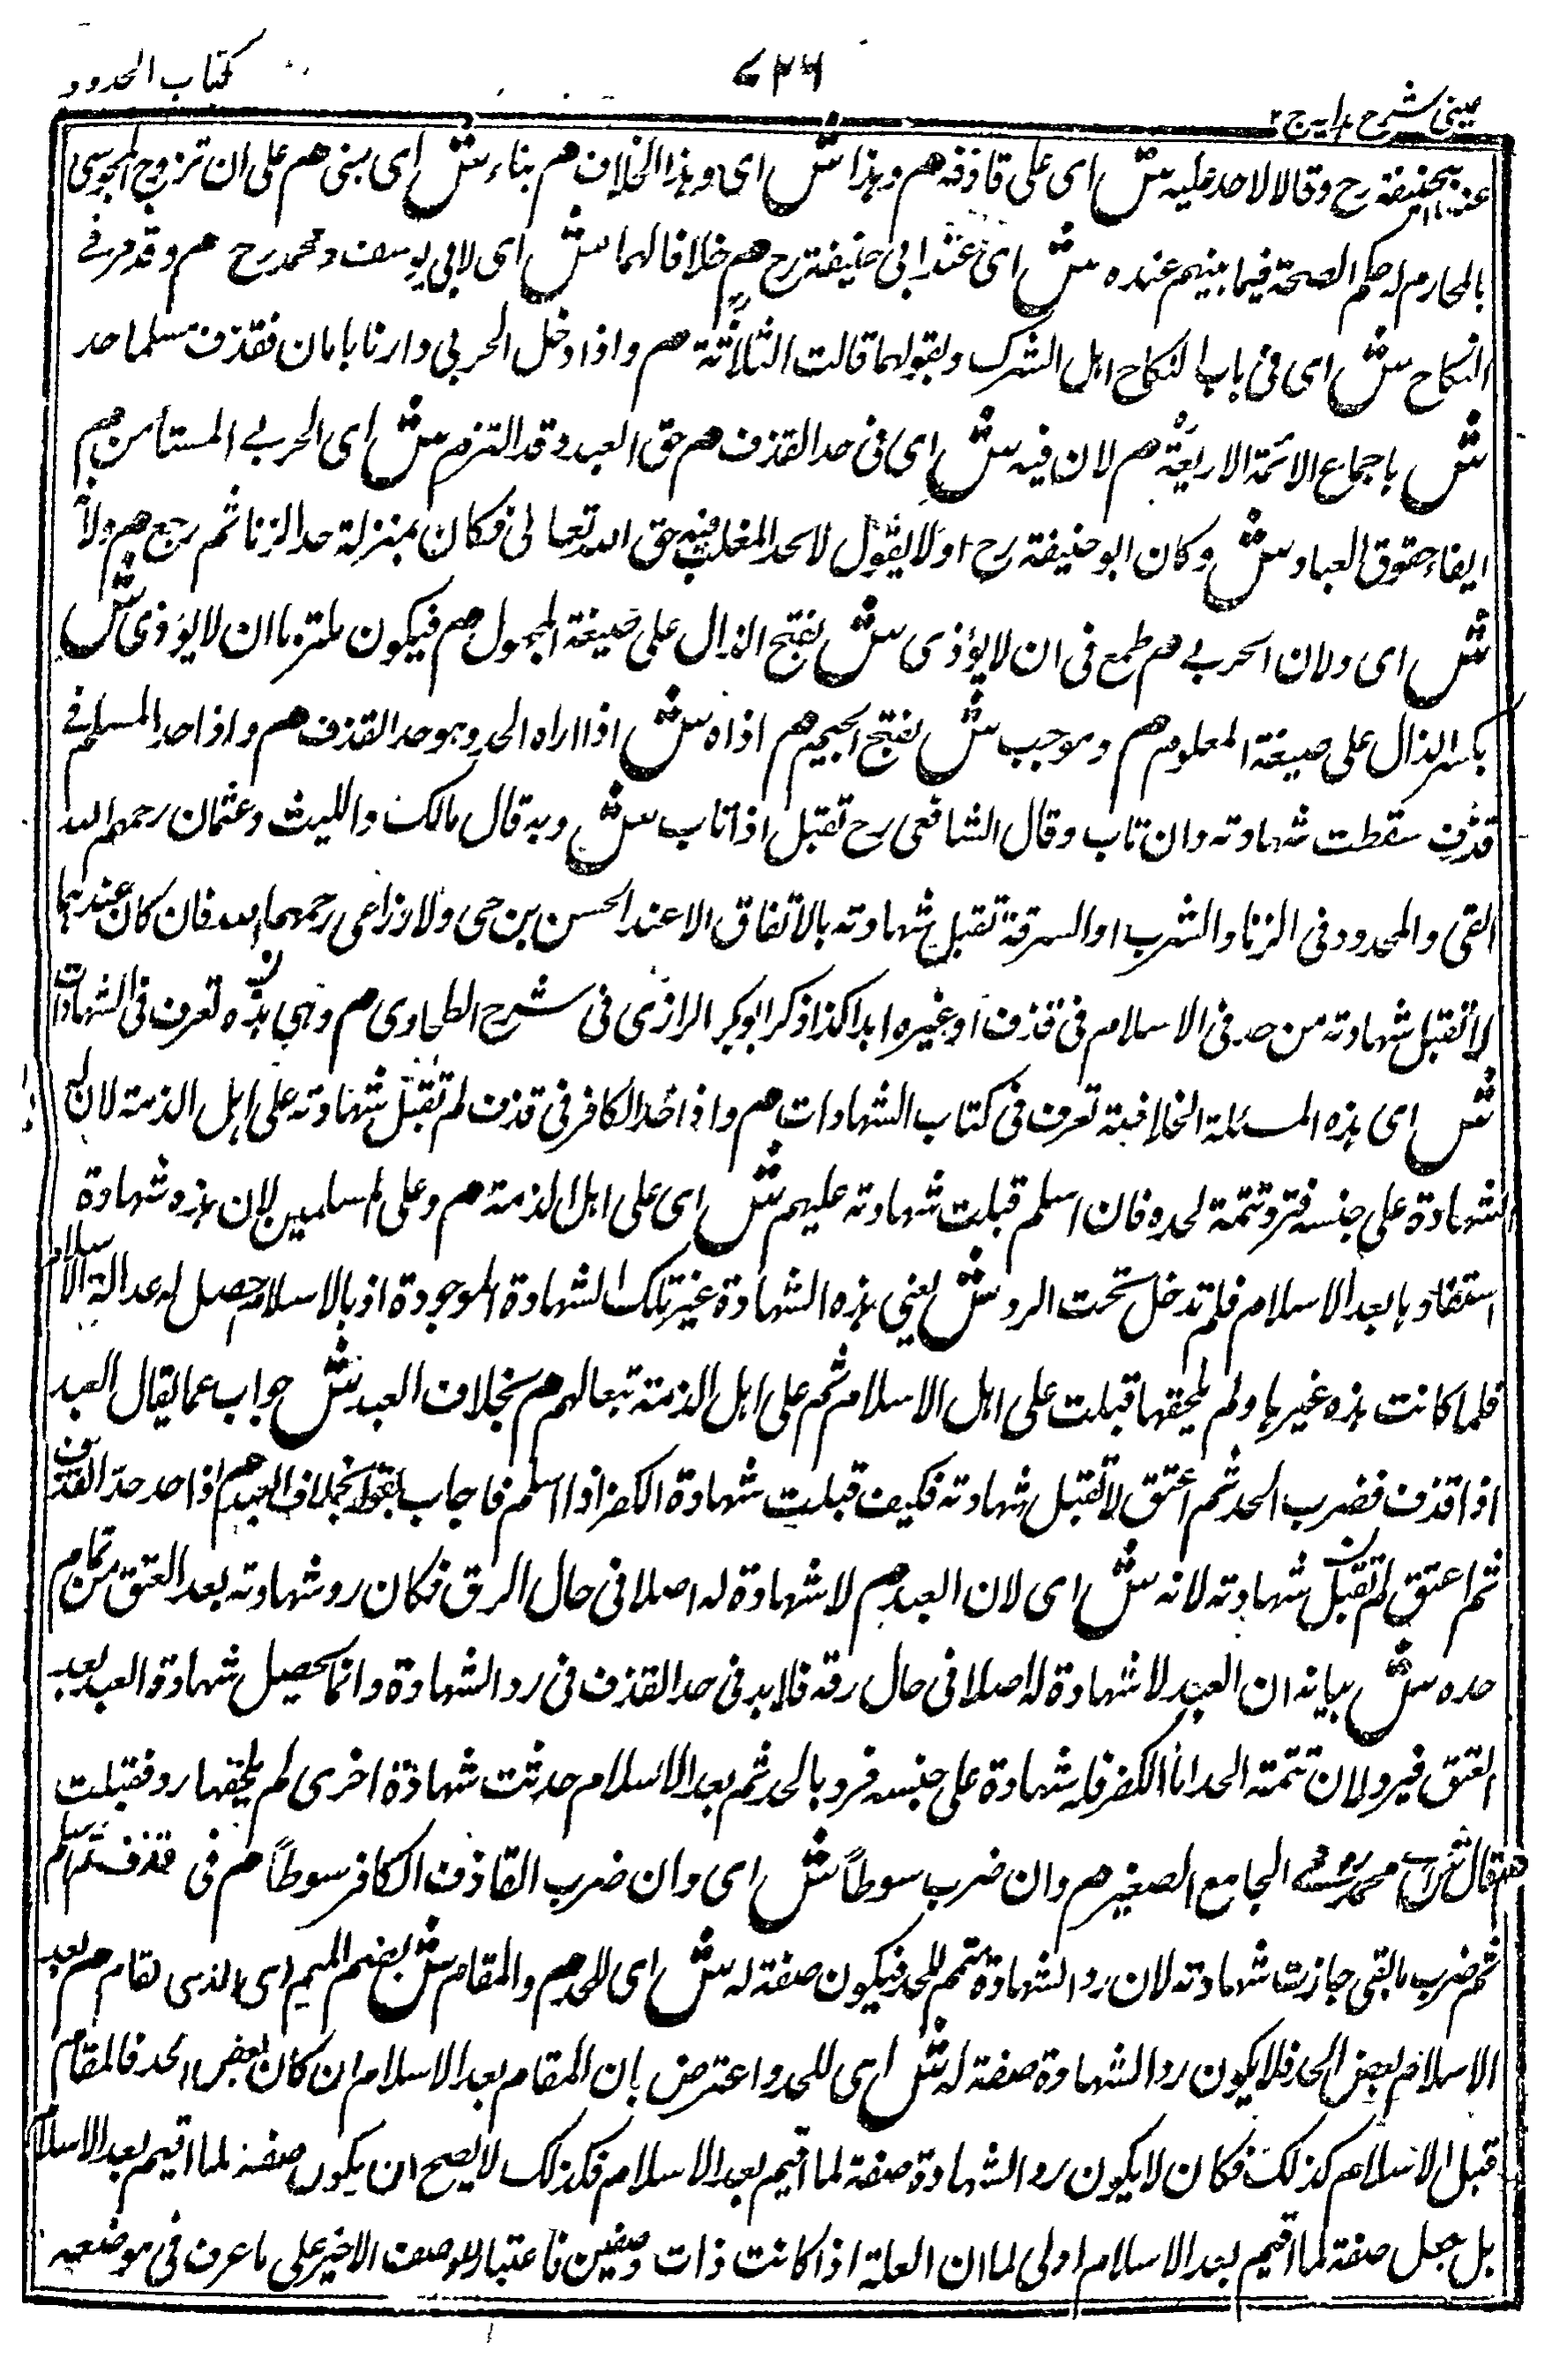 كتاب الحدود
٧٣٦
عينى شرح هدايه ج ٢
عند ابيحنيفة رح وقالا لا حد عليه ش اى على قاذفه هم وهذا ش اى وهذا الخلاف هم بناء ش اى مبنى هم على ان تزوج المجوسى
بالمحارم له حكم الصحة فيما بينهم عنده ش اى عند ابى حنيفة رح هم خلافا لهما ش اى لابى يوسف ومحمد رح هم وقد مر فى
النكاح ش اى فى باب النكاح اهل الشرك وبقولهما قالت الثلاثة هم واذا دخل الحربى دارنا بامان فقذف مسلما حد
ش باجماع الائمة الاربعة هم لان فيه ش اى فى حد القذف هم حق العبد وقد التزم ش اى الحربى المستأمن هم
ايفاء حقوق العباد ش وكان ابو حنيفة رح اولا يقول لا يحد المغلب فيه حق الله تعالى فكان بمنزلة حد الزنا ثم رجع هم ولانه
ش اى ولان الحربى هم طمع فى ان لا يؤذى ش بفتح الذال على صيغة المجهول هم فيكون ملتزما ان لا يؤذى ش
بكسر الذال على صيغة المعلوم هم وموجب ش بفتح الجيم هم اذاه ش اذا اراه الحد وهو حد القذف هم واذا حد المسلم فى
قذف سقطت شهادته وان تاب وقال الشافعى رح تقبل اذا تاب ش وبه قال مالك والليث وعثمان رحمهم الله
البتى والمحدود فى الزنا والشرب او السرقة تقبل شهادته بالاتفاق الا عند الحسن بن حى والاوزاعى رحمهما الله فان كان عندهما
لا تقبل شهادته من حد فى الاسلام فى قذف او غيره ابدا كذا ذكر ابو بكر الرازى فى شرح الطحاوى هم وهى هذه تعرف فى الشهادات
ش اى هذه المسئلة الخلافية تعرف فى كتاب الشهادات هم واذا حد الكافر فى قذف لم تقبل شهادته على اهل الذمة لان له
الشهادة على جنسه فترد تتمة لحده فان اسلم قبلت شهادته عليهم ش اى على اهل الذمة هم وعلى المسلمين لان هذه شهادة
استفادها بعد الاسلام فلم تدخل تحت الرد ش يعنى هذه الشهادة غير تلك الشهادة الموجودة اذ بالاسلام حصل له عدالة الاسلام
فلما كانت هذه غيرها ولم يلحقها قبلت على اهل الاسلام ثم على اهل الذمة تبعا لهم هم بخلاف العبد ش جواب عما يقال العبد
اذا قذف فضرب الحد ثم اعتق لا تقبل شهادته فكيف قبلت شهادة الكفر اذا اسلم فاجاب بقوله بخلاف العبد هم اذا حد حد القذف
ثم اعتق لم تقبل شهادته لانه ش اى لان العبد هم لا شهادة له اصلا فى حال الرق فكان رد شهادته بعد العتق من تمام
حده ش بيانه ان العبد لا شهادة له اصلا فى حال رقه فلا بد فى حد القذف فى رد الشهادة وانما يحصل شهادة العبد بعد
العتق فيرد لان تتمته الحد اما الكفر فله شهادة على جنسه فرد بالحد ثم بعد الاسلام حدثت شهادة اخرى لم يلحقها رد فقبلت
هم قال ش اى محمد رح فى الجامع الصغير هم وان ضرب سوطاً ش اى وان ضرب القاذف الكافر سوطاً هم فى قذف ثم اسلم
ثم ضرب ما بقى جازت شهادته لان رد الشهادة متمم للحد فيكون صفة له ش اى للحد هم والمقام ش بضم الميم اى الذى يقام هم بعد
الاسلام بعض الحد فلا يكون رد الشهادة صفة له ش اى للحد واعترض بان المقام بعد الاسلام ان كان بعض الحد فالمقام
قبل الاسلام كذلك فكان لا يكون رد الشهادة صفة لما اقيم بعد الاسلام فكذلك لا يصح ان يكون صفة لما اقيم بعد الاسلام
بل جعل صفة لما اقيم بعد الاسلام اولى لما ان العلة اذا كانت ذات وصفين فاعتبار للوصف الاخير على ما عرف فى موضعه